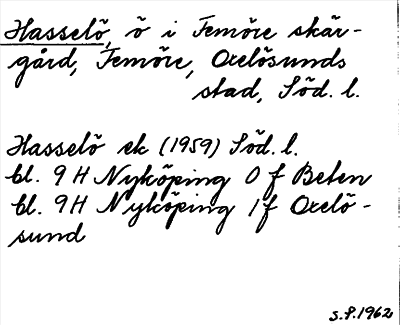 Hasselö, ö i Femöre skär-
gård, Femöre, Oxelösunds
stad, Söd. l.
Hasselö ek (1959) Söd. l.
bl. 9 H Nyköping 0 f Beten
bl. 9H Nyköping 1 f Oxelö-
sund
S.P. 1962